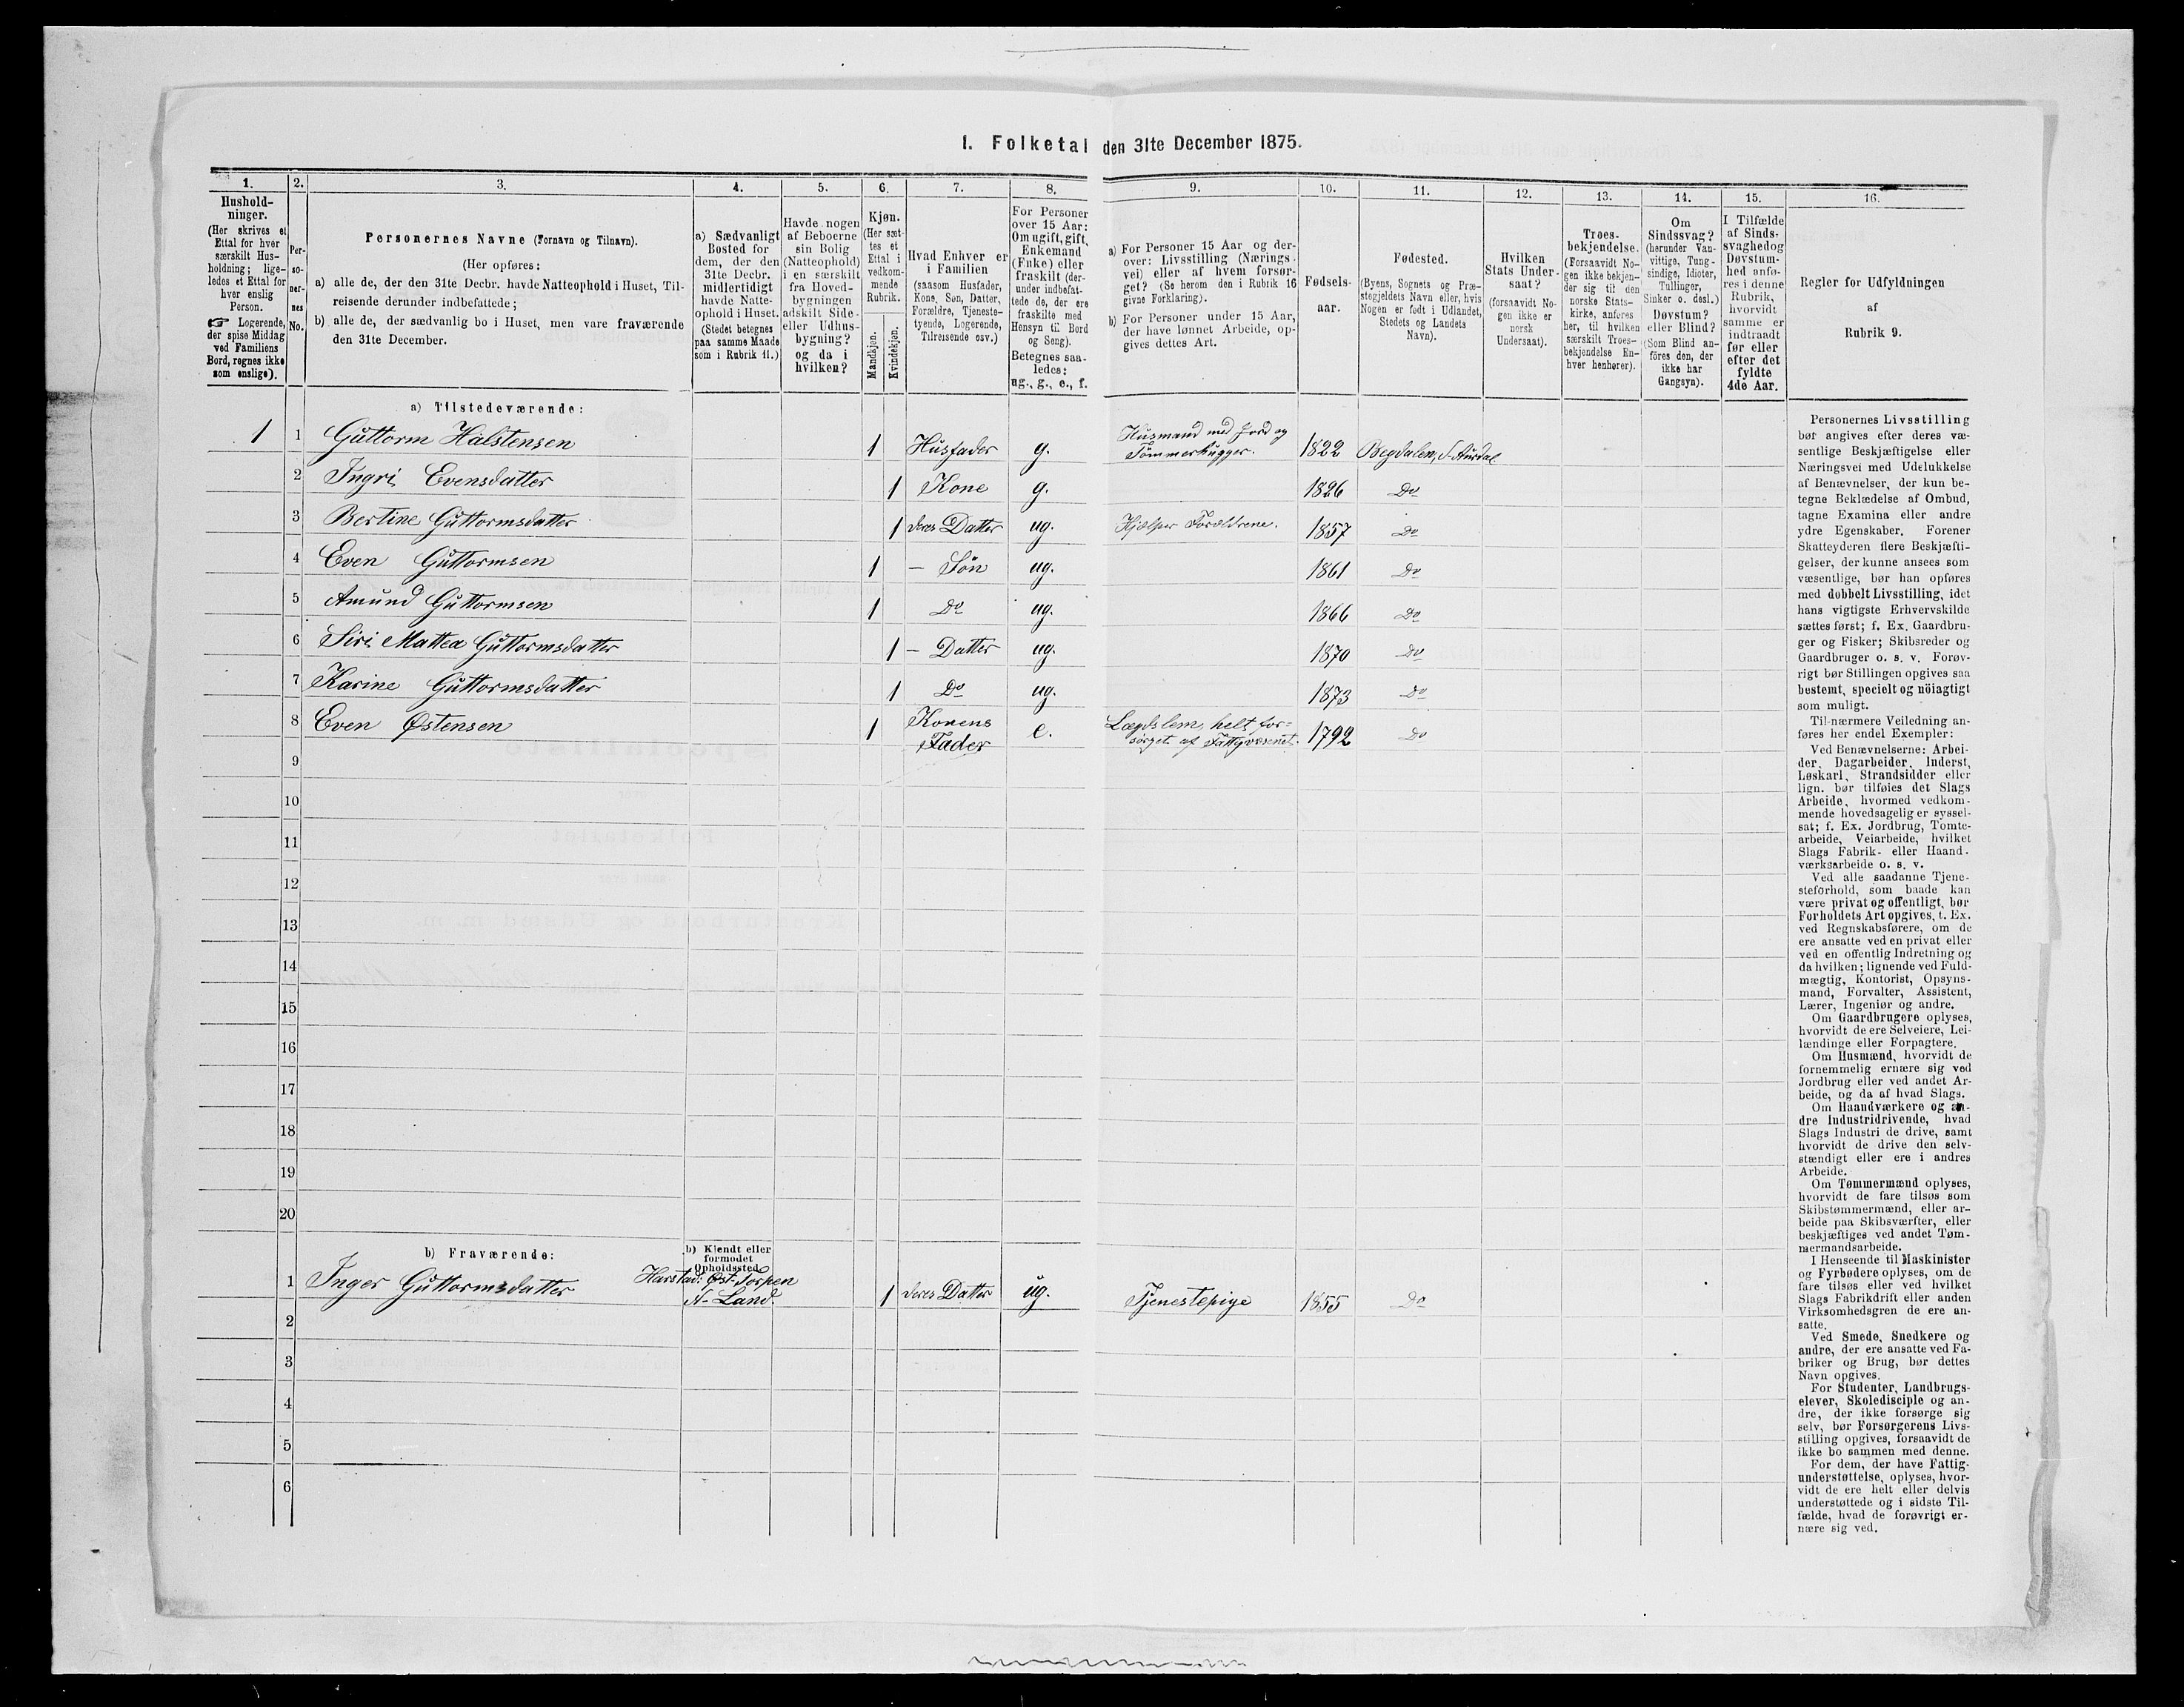 1. Folketal den 31te December 1875.
1.
Hushold-
ninger.
(Her skrives et
Ettal for hver
særskilt Hus-
holdning; lige-
ledes et Ettal for
hver enslig
Person.
☞ Logerende,
der spise Middag
ved Familiens
Bord, regnes ikke
som enslige).
2.
Per-
so-
ner-
nes
No.
3.
Personernes Navne (Fornavn og Tilnavn).
(Her opføres:
a) alle de, der den 31te Decbr. havde Natteophold i Huset, Til-
reisende derunder indbefattede;
b) alle de, der sædvanlig bo i Huset, men vare fraværende
den 31te December.
4.
a) Sædvanligt
Bosted for
dem, der den
31te Decbr.
midlertidigt
havde Natte-
ophold i Huset.
(Stedet betegnes
paa samme Maade
som i Rubrik 11.)
5.
Havde nogen
af Beboerne
sin Bolig
(Natteophold)
i en særskilt
fra Hoved-
bygningen
adskilt Side-
eller Udhus-
bygning?
og da i
hvilken?
6.
Kjøn.
(Her sæt-
tes et
Ettal i
vedkom-
mende
Rubrik.
Mandkjøn.
Kvindekjøn.
7.
Hvad Enhver er
i Familien
(saasom Husfader,
Kone, Søn, Datter,
Forældre, Tjeneste-
tyende, Logerende,
Tilreisende osv.)
8.
For Personer
over 15 Aar:
Om ugift, gift,
Enkemand
(Enke) eller
fraskilt (der-
under indbefat-
tede de, der ere
fraskilte med
Hensyn til Bord
og Seng).
Betegnes saa-
ledes:
ug., g., e., f.
9.
a) For Personer 15 Aar og der-
over: Livsstilling (Nærings-
vei) eller af hvem forsør-
get? (Se herom den i Rubrik 16
givne Forklaring).
b) For Personer under 15 Aar,
der have lønnet Arbeide, op-
gives dettes Art.
10.
Fødsels-
aar.
11.
Fødested.
(Byens, Sognets og Præ-
stegjeldets Navn eller, hvis
Nogen er født i Udlandet,
Stedets og Landets
Navn).
12.
Hvilken
Stats Under-
saat?
(forsaavidt No-
gen ikke er
norsk
Undersaat).
13.
Troes-
bekjendelse.
(Forsaavidt No-
gen ikke bekjen-
der sig til den
norske Stats-
kirke, anføres
her, til hvilken
særskilt Troes-
bekjendelse En-
hver henhører).
14.
Om
Sindssvag?
(herunder Van-
vittige, Tung-
sindige, Idioter,
Tullinger,
Sinker o. desl.)
Døvstum?
eller Blind?
(Som Blind an-
føres den, der
ikke har
Gangsyn).
15.
I Tilfælde
af Sinds-
svaghed og
Døvstum-
hed anfø-
res i denne
Rubrik,
hvorvidt
samme er
indtraadt
før eller
efter det
fyldte
4de Aar.
16.
Regler for Udfyldningen
af
Rubrik 9.
a) Tilstedeværende:
1 1 Guttorm Halstensen 1 Husfader g. Husmand med Jord og
Tømmerhugger. 1822 Begdalen, S. Aurdal
2 Ingri Evensdatter 1 Kone g. 1826 Do
3 Bertine Guttormsdatter 1 deres Datter ug. Hjælper Forældrene. 1857 Do
4 Even Guttormsen 1 – Søn ug. 1861 Do
5 Amund Guttormsen 1 Do ug. 1866 Do
6 Siri Mattea Guttormsdatter 1 – Datter ug. 1870 Do
7 Karine Guttormsdatter 1 Do ug. 1873 Do
8 Even Østensen 1 Konens
Fader e. Lægdslem, helt for-
sørget af Fattigvæsenet. 1792 Do
9
10
11
12
13
14
15
16
17
18
19
20
b) Fraværende:
b) Kjendt eller
formodet
Opholdssted.
1 Inger Guttormsdatter Harstad: Øst-Torpen
N-Land. 1 deres Datter ug. Tjenestepige 1855 Do
2
3
4
5
6
Personernes Livsstilling
bør angives efter deres væ-
sentlige Beskjæftigelse eller
Næringsvei med Udelukkelse
af Benævnelser, der kun be-
tegne Beklædelse af Ombud,
tagne Examina eller andre
ydre Egenskaber. Forener
Skatteyderen flere Beskjæfti-
gelser, der kunne ansees som
væsentlige, bør han opføres
med dobbelt Livsstilling, idet
hans vigtigste Erhvervskilde
sættes først; f. Ex. Gaardbru-
ger og Fisker; Skibsreder og
Gaardbruger o. s. v. Forøv-
rigt bør Stillingen opgives saa
bestemt, specielt og nöiagtigt
som muligt.
Til nærmere Veiledning an-
føres her endel Exempler:
Ved Benævnelserne: Arbei-
der, Dagarbeider, Inderst,
Løskarl, Strandsidder eller
lign. bør tilføies det Slags
Arbeide, hvormed vedkom-
mende hovedsagelig er syssel-
sat; f. Ex. Jordbrug, Tomte-
arbeide, Veiarbeide, hvilket
Slags Fabrik- eller Haand-
værksarbeide o. s. v.
Ved alle saadanne Tjene-
steforhold, som baade kan
være privat og offentligt, bør
Forholdets Art opgives, t. Ex.
ved Regnskabsførere, om de
ere ansatte ved en privat eller
ved en offentlig Indretning og
da hvilken; lignende ved Fuld-
mægtig, Kontorist, Opsyns-
mand, Forvalter, Assistent,
Lærer, Ingeniør og andre.
Om Gaardbrugere oplyses,
hvorvidt de ere Selveiere, Lei-
lændinge eller Forpagtere.
Om Husmænd, hvorvidt de
fornemmelig ernære sig ved
Jordbrug eller ved andet Ar-
beide, og da af hvad Slags.
Om Haandværkere og an-
dre Industridrivende, hvad
Slags Industri de drive, samt
hvorvidt de drive den selv-
stændigt eller ere i andres
Arbeide.
Om Tømmermænd oplyses,
hvorvidt de fare tilsøs som
Skibstømmermænd, eller ar-
beide paa Skibsværfter, eller
beskjæftiges ved andet Tøm-
mermandsarbeide.
I Henseende til Maskinister
og Fyrbødere oplyses, om de
fare tilsøs eller ved hvilket
Slags Fabrikdrift eller anden
Virksomhedsgren de ere an-
satte.
Ved Smede, Snedkere og
andre, der ere ansatte ved Fa-
briker og Brug, bør dettes
Navn opgives.
For Studenter, Landbrugs-
elever, Skoledisciple og an-
dre, der ikke forsørge sig
selv, bør Forsørgerens Livs-
stilling opgives, forsaavidt de
ikke bo sammen med denne.
For dem, der have Fattig-
understøttelse, oplyses, hvor-
vidt de ere helt eller delvis
understøttede og i sidste Til-
fælde, hvad de forøvrigt er-
nære sig ved.